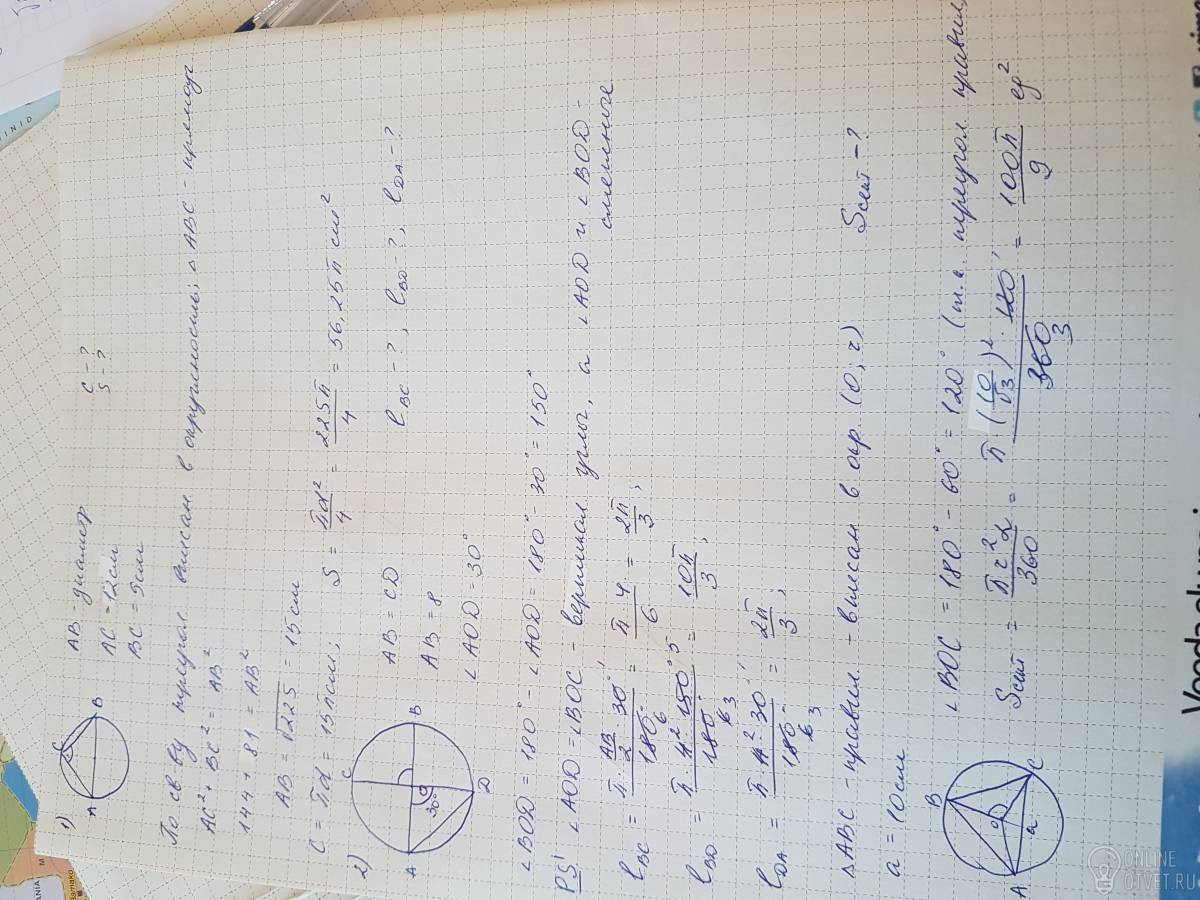 1)
AB - диаметр
AC = 12см
BC = 5см
C - ?
S - ?
A C B
По св ву треугол вписан в окружность, △ ABC - прямоуг
AC² + BC² = AB²
144 + 81 = AB²
AB = √225 = 15 см
C = πd = 15π см; S = πd²/4 = 225π/4 = 56,25π см²
2)
A C B D O 30°
AB = CD
AB = 8
∠AOD = 30°
l BC - ?, l BD - ?, l DA - ?
∠BOD = 180° - ∠AOD = 180° - 30° = 150°
PS! ∠AOD = ∠BOC - вертикал углы, а ∠AOD и ∠BOD -
смежные
l BC = π · AB/2 · 30 / 180° 6 = π 4/6 = 2π/3;
l BD = π · 4² · 150° 5 / 180 6 3 = 10π/3;
l DA = π · 4² · 30' / 180 6 3 = 2π/3;
△ABC - правил - вписан в окр (O, r) Sсект - ?
a = 10см
A B C O a
∠BOC = 180° - 60° = 120° (т.к. треугол правил,
Sсект = πr²α/360 = π (10/√3)² · 120' / 360 3 = 100π/9 ср²
Voodschuvi
ONLINE
OTVET.RU